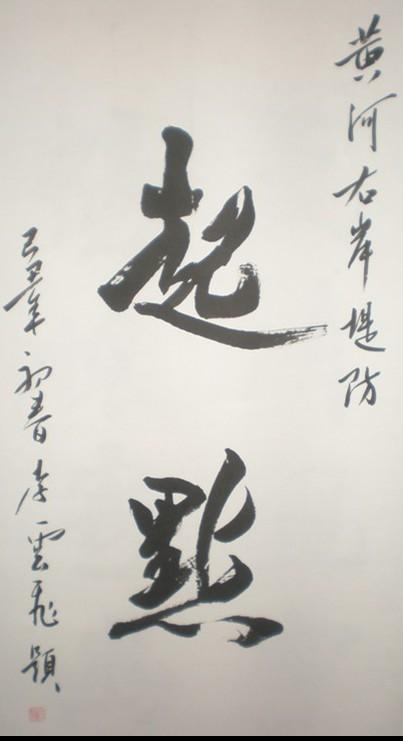 黄河右岸堤防
起點
己丑年初春李雲飛題